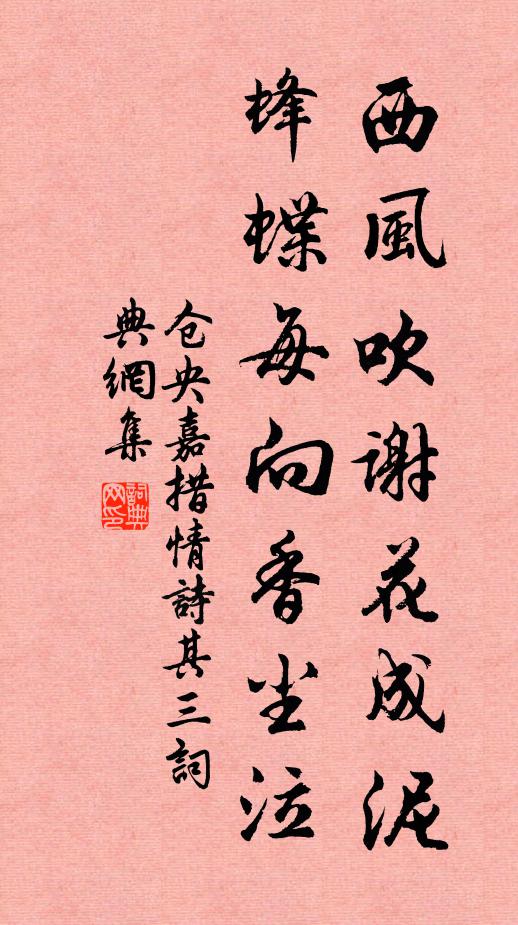 西風吹謝花成泥
蜂蝶每向香尘泣
仓央嘉措情詩其三詞
典網集
詞典
网印